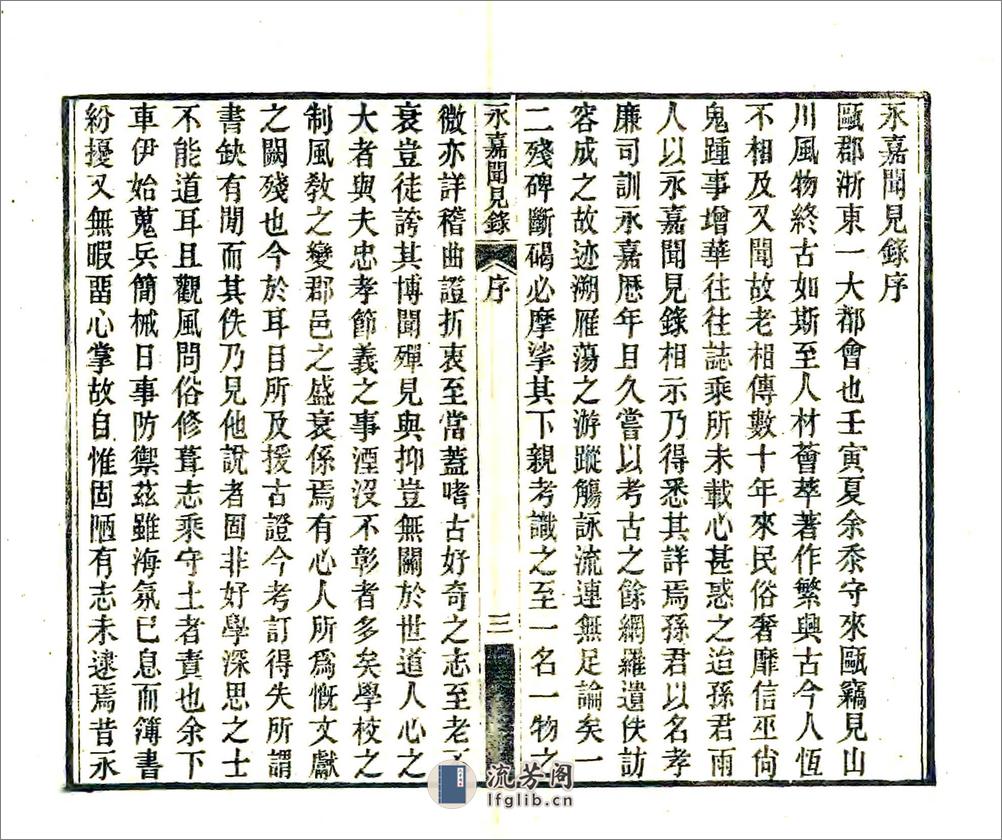 永嘉聞見錄序
甌郡浙東一大都會也壬寅夏余忝守來甌竊見山
川風物終古如斯至人材薈萃著作繁興古今人恆
不相及又聞故老相傳數十年來民俗奢靡信巫尙
鬼踵事增華往往誌乘所未載心甚惑之迨孫君雨
人以永嘉聞見錄相示乃得悉其詳焉孫君以名孝
廉司訓永嘉歷年且久嘗以考古之餘網羅遺佚訪
容成之故迹溯雁蕩之游蹤觴詠流連無足論矣一
二殘碑斷碣必摩挲其下親考識之至一名一物之
永嘉聞見錄 序 三
微亦詳稽曲證折衷至當蓋嗜古好奇之志至老不
衰豈徒誇其博聞殫見與抑豈無關於世道人心之
大者與夫忠孝節義之事湮沒不彰者多矣學校之
制風敎之變郡邑之盛衰係焉有心人所爲慨文獻
之闕殘也今於耳目所及援古證今考訂得失所謂
書缺有閒而其佚乃見他說者固非好學深思之士
不能道耳且觀風問俗修葺志乘守土者責也余下
車伊始蒐兵簡械日事防禦茲雖海氛已息而簿書
紛擾又無暇畱心掌故自惟固陋有志未逮焉昔永
流芳阁
lfglib.cn